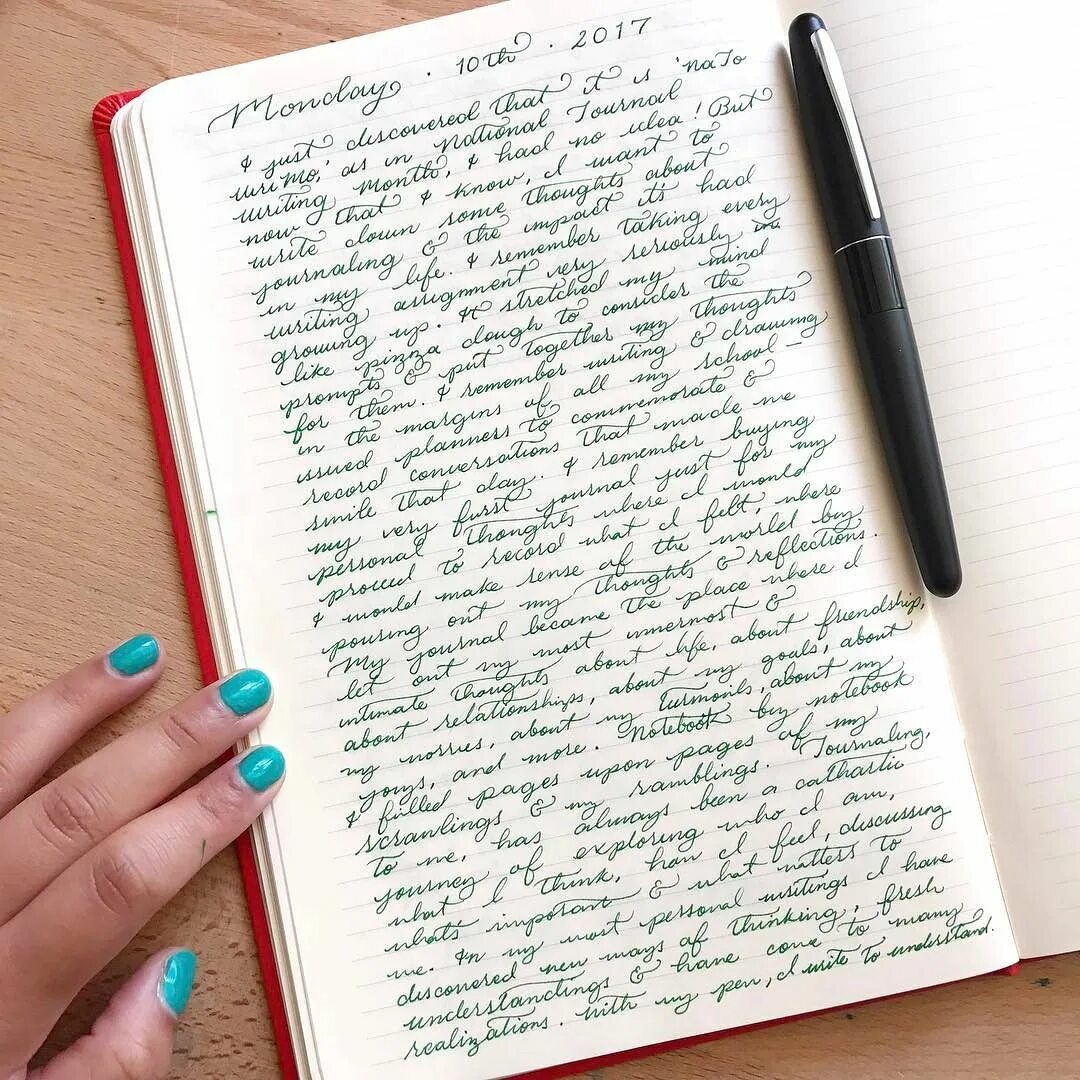 Monday · 10th · 2017
I just discovered that it is 'NaJo
WriMo,' as in National Journal
Writing Month, I had no idea! But
now that I know, I want to
write down some thoughts about
journaling & the impact it's had
in my life. I remember taking every
writing assignment very seriously
growing up. It stretched my mind
like pizza dough to consider the
prompts & put together my thoughts
for them. I remember writing & drawing
in the margins of all my school-
issued planners to commemorate &
record conversations that made me
smile that day. I remember buying
my very first journal just for my
personal thoughts where I would
proceed to record what I felt, where
I would make sense of the world by
pouring out my thoughts & reflections.
My journal became the place where I
let out my most innermost &
intimate thoughts about life, about friendship,
about relationships, about my goals, about
my worries, about my turmoils, about my
joys, and more. Notebook by notebook
I filled pages upon pages of my
scrawlings & my ramblings. Journaling,
to me, has always been a cathartic
journey of exploring who I am,
what I think, how I feel, discussing
what's important & what matters to
me. In my most personal writings I have
discovered new ways of thinking, fresh
understandings & have come to many
realizations. With my pen, I write to understand.